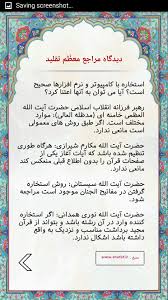 Saving screenshot...
دیدگاه مراجع معظّم تقلید
استخاره با کامپیوتر و نرم افزارها صحیح
است؟ آیا می توان به آنها اعتنا کرد؟
رهبر فرزانه انقلاب اسلامی حضرت آیت الله
العظمی خامنه ای (مدظله العالی): موارد
مختلف است. اگر طبق روش های معمولی باشد
مانعی ندارد.
حضرت آیت الله مکارم شیرازی: هرگاه طوری
تنظیم شده باشد که آیات آغاز یکی از
صفحات قرآن را بدون اطلاع قبلی منعکس کند
مانعی ندارد.
حضرت آیت الله سیستانی: روش استخاره
گرفتن در مفاتیح الجنان موجود است مراجعه
شود.
حضرت آیت الله نوری همدانی: اگر استخاره
کننده وارد در آن رشته باشد و بتواند از قرآن
مجید برداشت مناسب و نزدیک به واقع
داشته باشد اشکال ندارد.